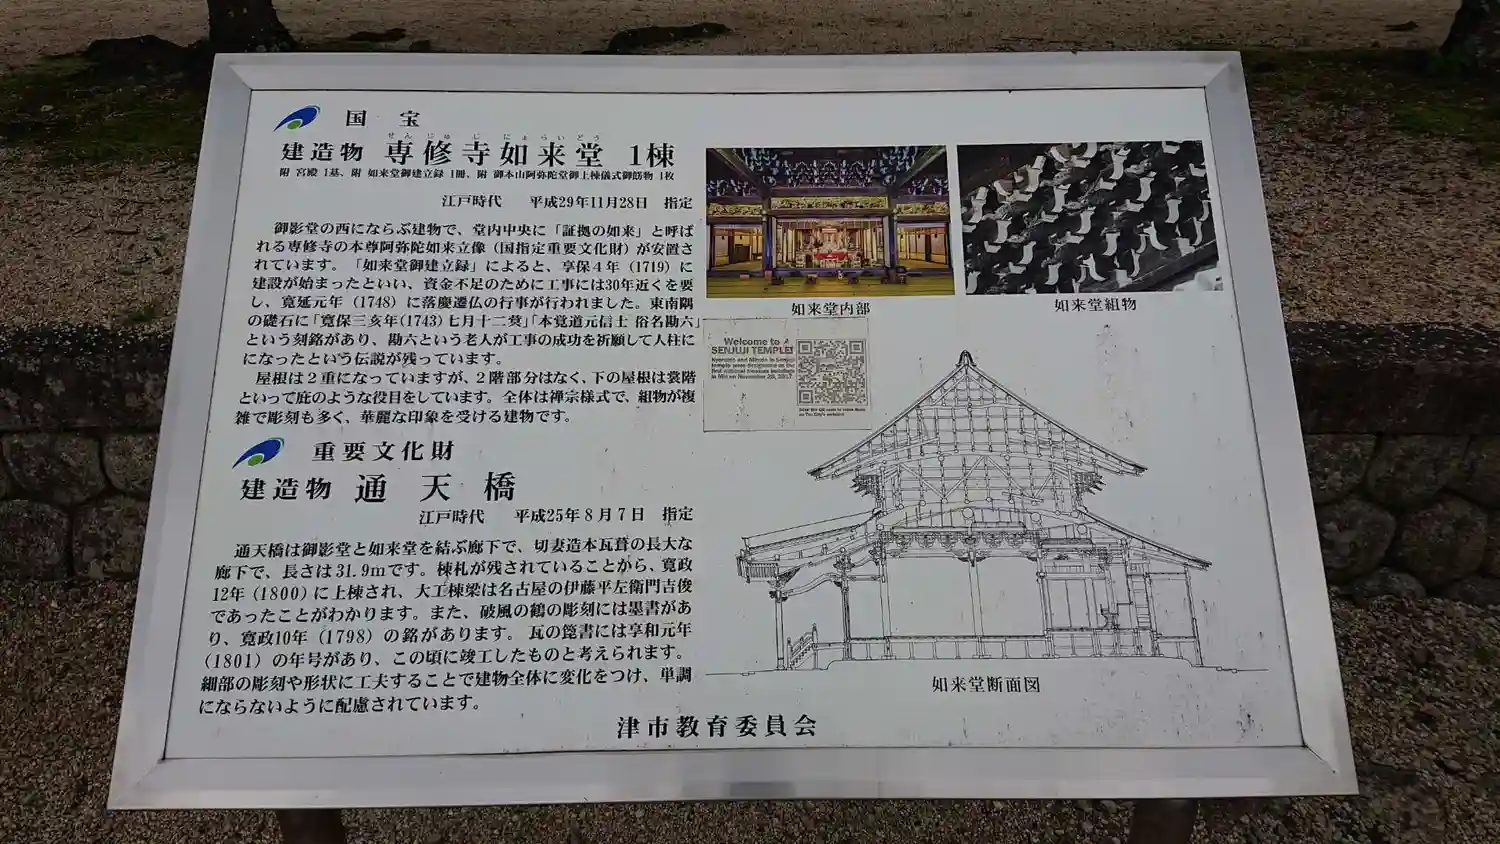 国 宝
せんじゅじにょらいどう
建造物 専修寺如来堂 1棟
附 宮殿 1基、附 如来堂御建立録 1冊、附 御本山阿弥陀堂御上棟儀式御餝物 1枚
江戸時代 平成29年11月28日 指定
御影堂の西にならぶ建物で、堂内中央に「証拠の如来」と呼ば
れる専修寺の本尊阿弥陀如来立像（国指定重要文化財）が安置さ
れています。「如来堂御建立録」によると、享保４年（1719）に
建設が始まったといい、資金不足のために工事には30年近くを要
し、寛延元年（1748）に落慶遷仏の行事が行われました。東南隅
の礎石に「寛保三亥年(1743) 七月十二 」「本覚道元信士 俗名勘六」
という刻銘があり、勘六という老人が工事の成功を祈願して人柱に
になったという伝説が残っています。
屋根は２重になっていますが、２階部分はなく、下の屋根は裳階
といって庇のような役目をしています。全体は禅宗様式で、組物が複
雑で彫刻も多く、華麗な印象を受ける建物です。
重要文化財
建造物 通天橋
江戸時代 平成25年８月７日 指定
通天橋は御影堂と如来堂を結ぶ廊下で、切妻造本瓦葺の長大な
廊下で、長さは31.9mです。棟札が残されていることから、寛政
12年（1800）に上棟され、大工棟梁は名古屋の伊藤平左衛門吉俊
であったことがわかります。また、破風の鶴の彫刻には墨書があ
り、寛政10年（1798）の銘があります。瓦の箆書には享和元年
（1801）の年号があり、この頃に竣工したものと考えられます。
細部の彫刻や形状に工夫することで建物全体に変化をつけ、単調
にならないように配慮されています。
如来堂内部
如来堂組物
Welcome to
SENJUJI TEMPLE!
Nyoraido and Mieido in Senjuji
temple were designated as the
first national treasure buildings
in Mie on November 28, 2017
如来堂断面図
津市教育委員会